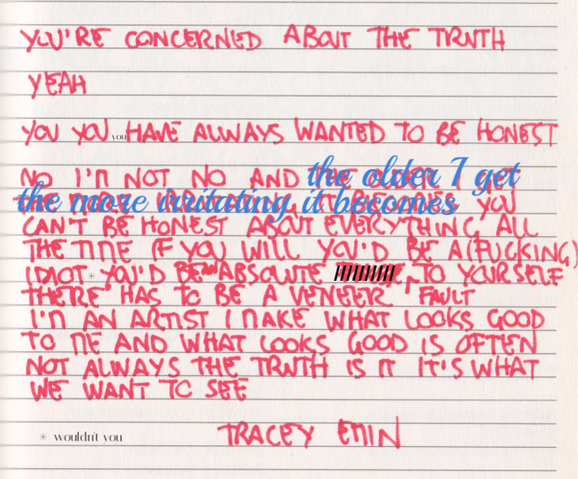 YOU'RE CONCERNED ABOUT THE TRUTH
YEAH
YOU YOU you HAVE ALWAYS WANTED TO BE HONEST
NO I'M NOT NO AND the older I get
the more irritating it becomes YOU
CAN'T BE HONEST ABOUT EVERYTHING ALL
THE TIME IF YOU WILL YOU'D BE A (FUCKING)
IDIOT * YOU'D BE ABSOLUTE TO YOURSELF
THERE HAS TO BE A VENEER FAULT
I'M AN ARTIST I MAKE WHAT LOOKS GOOD
TO ME AND WHAT LOOKS GOOD IS OFTEN
NOT ALWAYS THE TRUTH IS IT IT'S WHAT
WE WANT TO SEE
* wouldn't you TRACEY EMIN